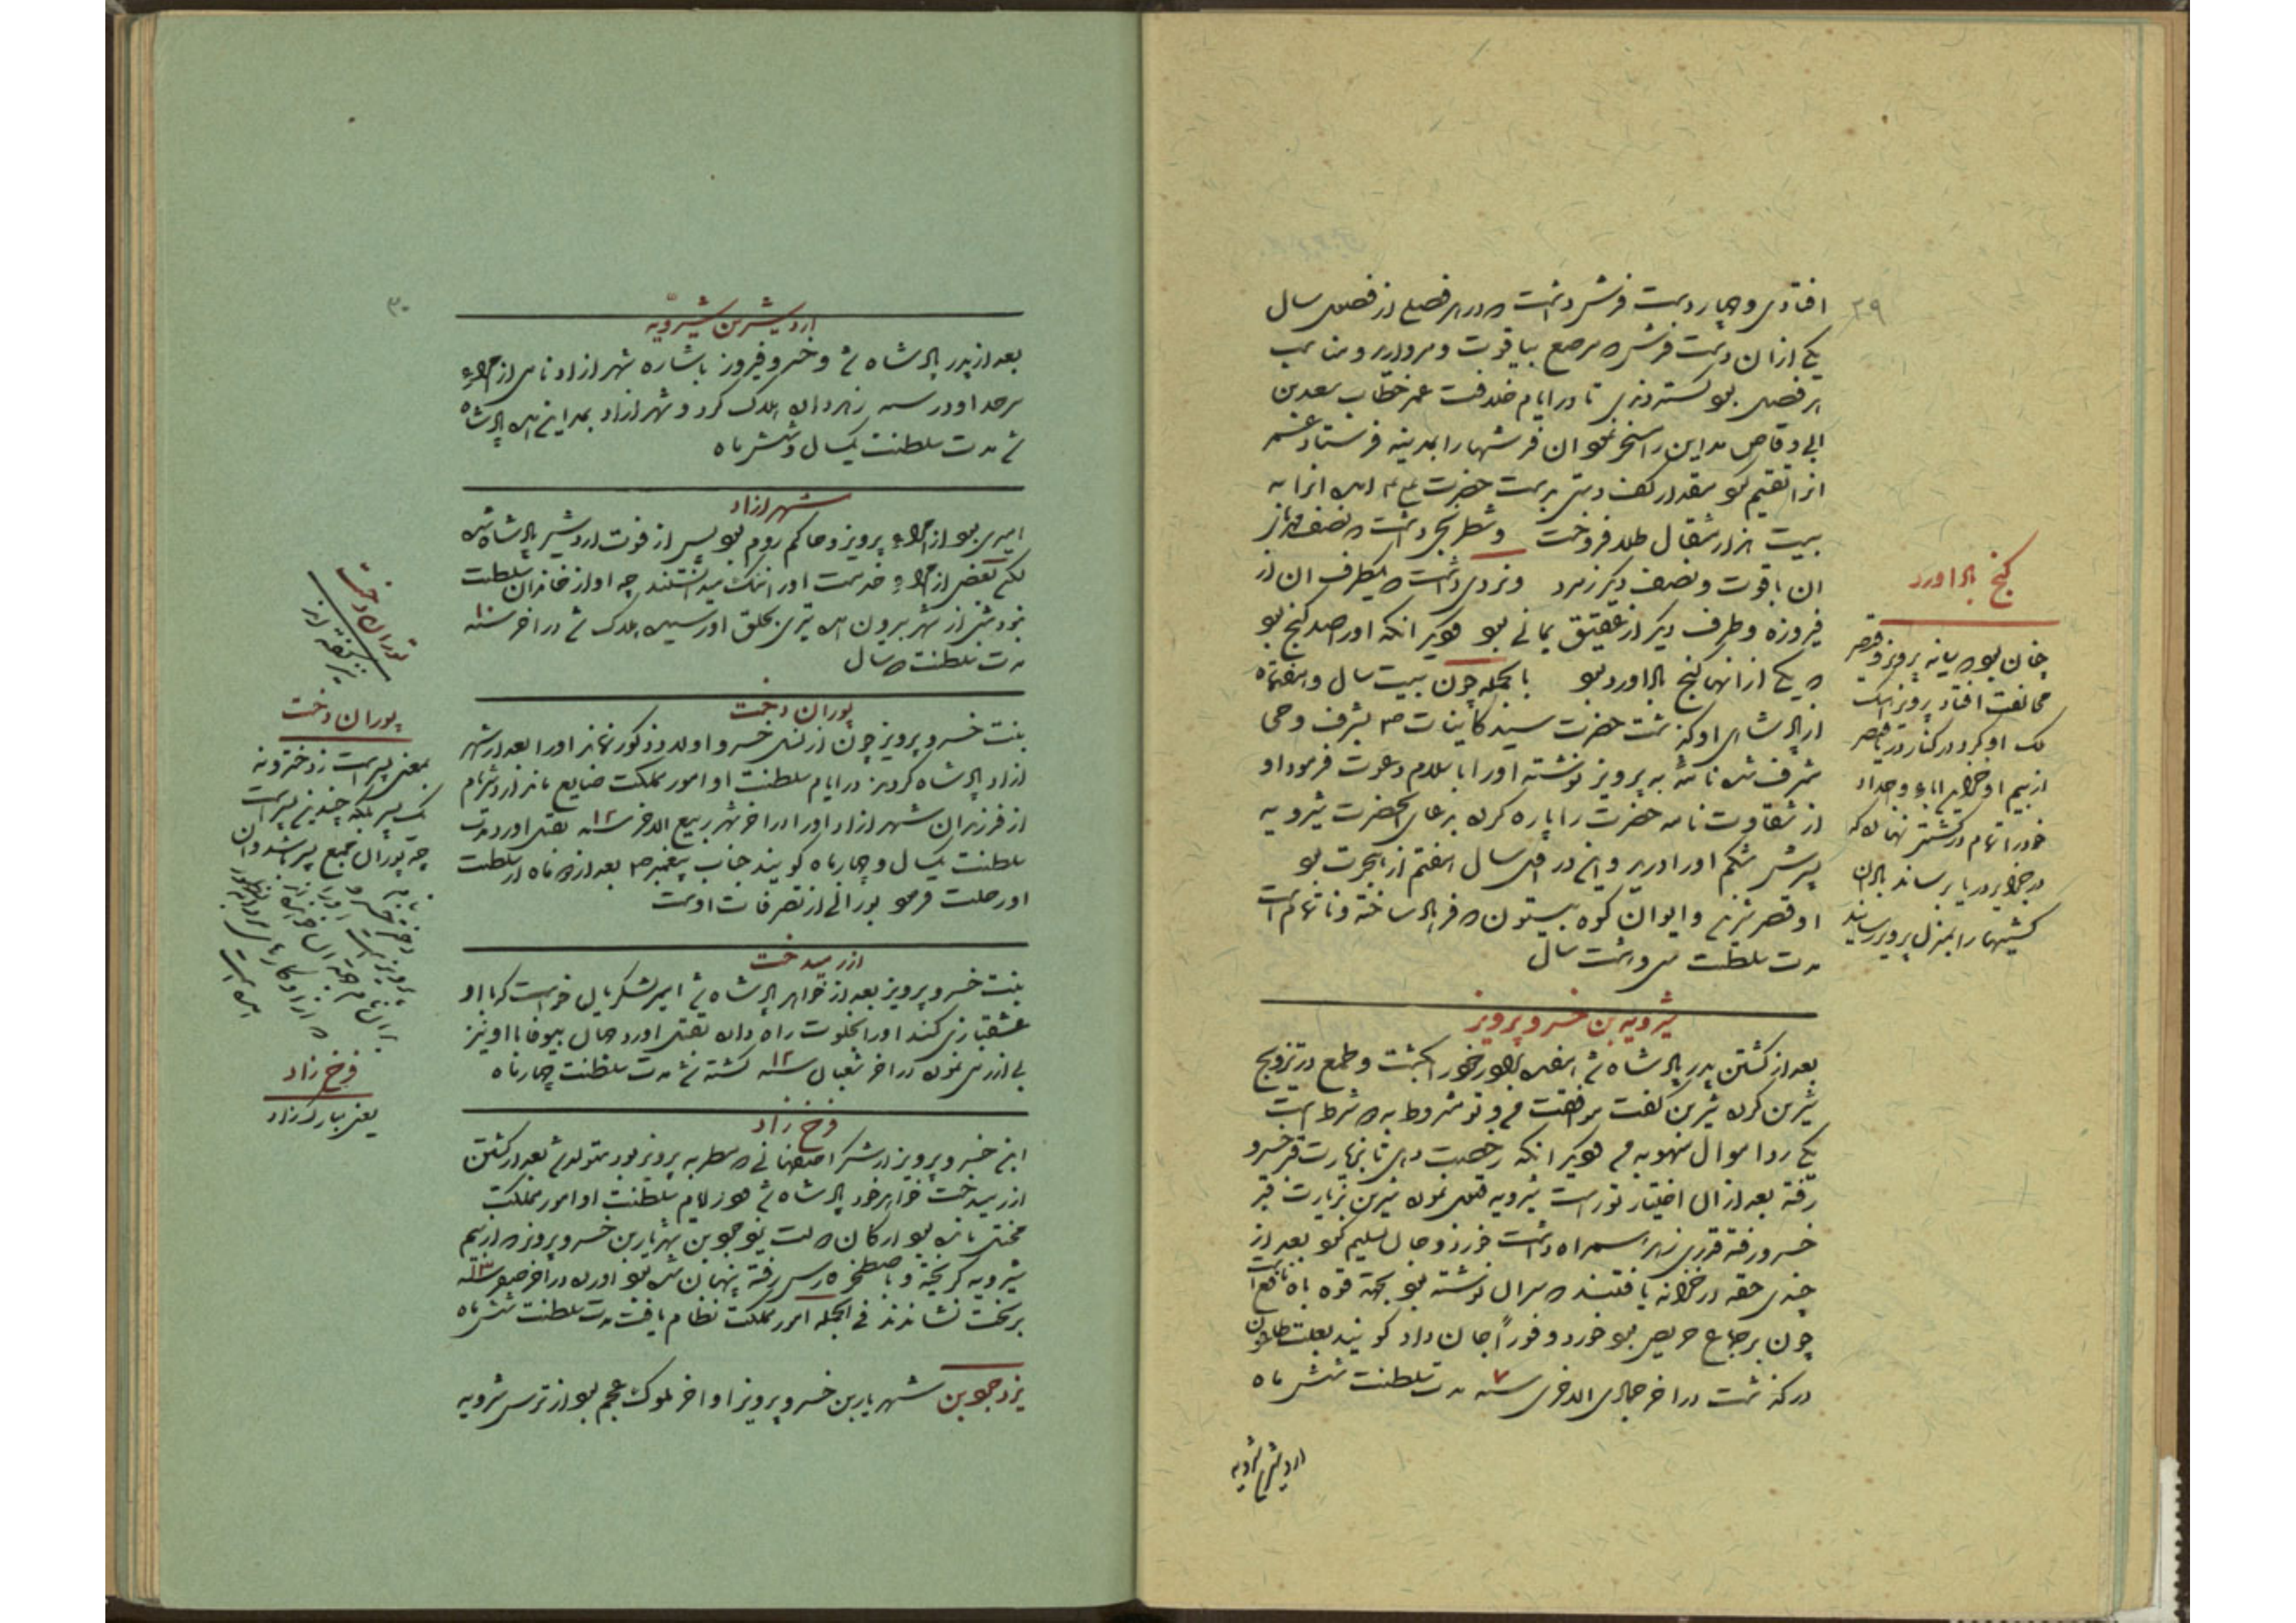 ۲۹
افتادی و چهار دست فرش داشت که در هر فصلی از فصول سال
یکی از آن دست فرش که مرصع بیاقوت و مروارید و مناسب
هر فصل بود گستردندی تا در ایام خلافت عمر خطاب سعد بن
ابی وقاص مداین را مسخر نمود آن فرشها را بمدینه فرستاد
انرا تقسیم نمود مقدار کف دستی بدست حضرت آمد انرا به
بیست هزار مثقال طلا فروخت و شطرنجی داشت که نصف مهره‌اش از
ان یاقوت و نصف دیگر زمرد و نردی داشت که یکطرف ان از
فیروزه و طرف دیگر از عقیق یمانی بود دیگر انکه او را صد گنج بود
که یکی از انها گنج باداورد بود بالجمله چون بیست سال
از پادشاهی او گذشت حضرت سید کاینات ص بشرف وحی
مشرف شده نامهٔ به پرویز نوشته او را باسلام دعوت فرمود او
از شقاوت نامه حضرت را پاره کرده بدعای انحضرت شیرویه
پسرش شکم او را درید و این در اوایل سال هفتم از هجرت بود
او قصر شیرین و ایوان کوه بیستون که فرهاد ساخته و ناتمام است
مدت سلطنت سی و هشت سال
گنج باداورد
چنان بود که میانه پرویز و قیصر
مخالفت افتاد پرویز اهنگ
ملک او کرد در کنار دریا قیصر
از بیم او خزاین اباء و اجداد
خود را تمام در کشتی نهاده که
در جزایر دریا برساند باد ان
کشتیها را بمنزل پرویز رسانید
شیرویه بن خسرو پرویز
بعد از کشتن پدر پادشاه شد هفده برادر خود را بکشت و طمع در تزویج
شیرین کرده شیرین گفت موافقت من و تو مشروط به دو شرط است
یکی رد اموال منهوبه من دیگر انکه رخصت دهی تا بزیارت قبر خسرو
رفته بعد از ان اختیار تو راست شیرویه قبول نموده شیرین بزیارت قبر
خسرو رفته قدری زهر همراه داشت خورد و جان تسلیم نمود بعد از
چندی حقه در خزانه یافتند که بر ان نوشته بود بجهة قوه باه نافع است
چون بر جماع حریص بود خورد و فوراً جان داد گویند بعلت طاعون
درگذشت در اخر جمادی الاخری سنه ۷ مدت سلطنت شش ماه
اردشیر شیرویه
۳۰
اردشیر بن شیرویه
بعد از پدر پادشاه شد و خسرو فیروز باشاره شهرازاد نامی از امراء
سرحد او در سنه زهر داده هلاک کرد و شهرازاد بمداین امده پادشاه
شد مدت سلطنت یکسال و شش ماه
شهرازاد
امیری بود از امراء پرویز و حاکم روم بود پس از فوت اردشیر پادشاه شده
لکن بعضی از امراء خدمت او را ننگ میدانستند چه او از خاندان سلطنت
نبود شبی از شهر بیرون امده تیری بحلق او رسیده هلاک شد در اخر سنه ۱۰
مدت سلطنت دو سال
پوران دخت
بنت خسرو پرویز چون از نسل خسرو اولاد ذکور نماند او را بعد از شهر
ازاد پادشاه کردند در ایام سلطنت او امور مملکت ضایع ماند
از فرزندان شهرازاد او را در اخر شهر ربیع الاخر سنه ۱۲ بقتل اورد مدت
سلطنت یکسال و چهار ماه گویند جناب پیغمبر ص بعد از ده ماه از سلطنت
او رحلت فرمود بورانی از تصرفات اوست
ازرمیدخت
بنت خسرو پرویز بعد از خواهر پادشاه شد امیر لشکر مایل خواست که با او
عشقبازی کند او را بخلوت راه داده بقتل اورد
بی ازرمی نموده در اخر شعبان سنه ۱۲ کشته شد مدت سلطنت چهار ماه
فرخ زاد
ابن خسرو پرویز از شکر اصفهانی که مطربه پرویز بود متولد شد بعد از کشتن
ازرمیدخت خواهر خود پادشاه شد در ایام سلطنت او امور مملکت
مختل مانده بود ارکان دولت یزدجرد بن شهریار بن خسرو پرویز که از بیم
شیرویه گریخته و باصطخر فارس رفته پنهان شده بود اورده در اخر صفر سنه ۱۳
بر تخت نشاندند فی الجمله امور مملکت نظام یافت مدت سلطنت شش ماه
یزدجرد بن شهریار بن خسرو پرویز او اخر ملوک عجم بود از ترس شیرویه
توران دخت
پوران دخت
بمعنی پسر است نه دختر و نه
یک پسر بلکه چندین پسر است
چه پوران جمع پسر باشد و ان
فرخ زاد
یعنی مبارک زاد